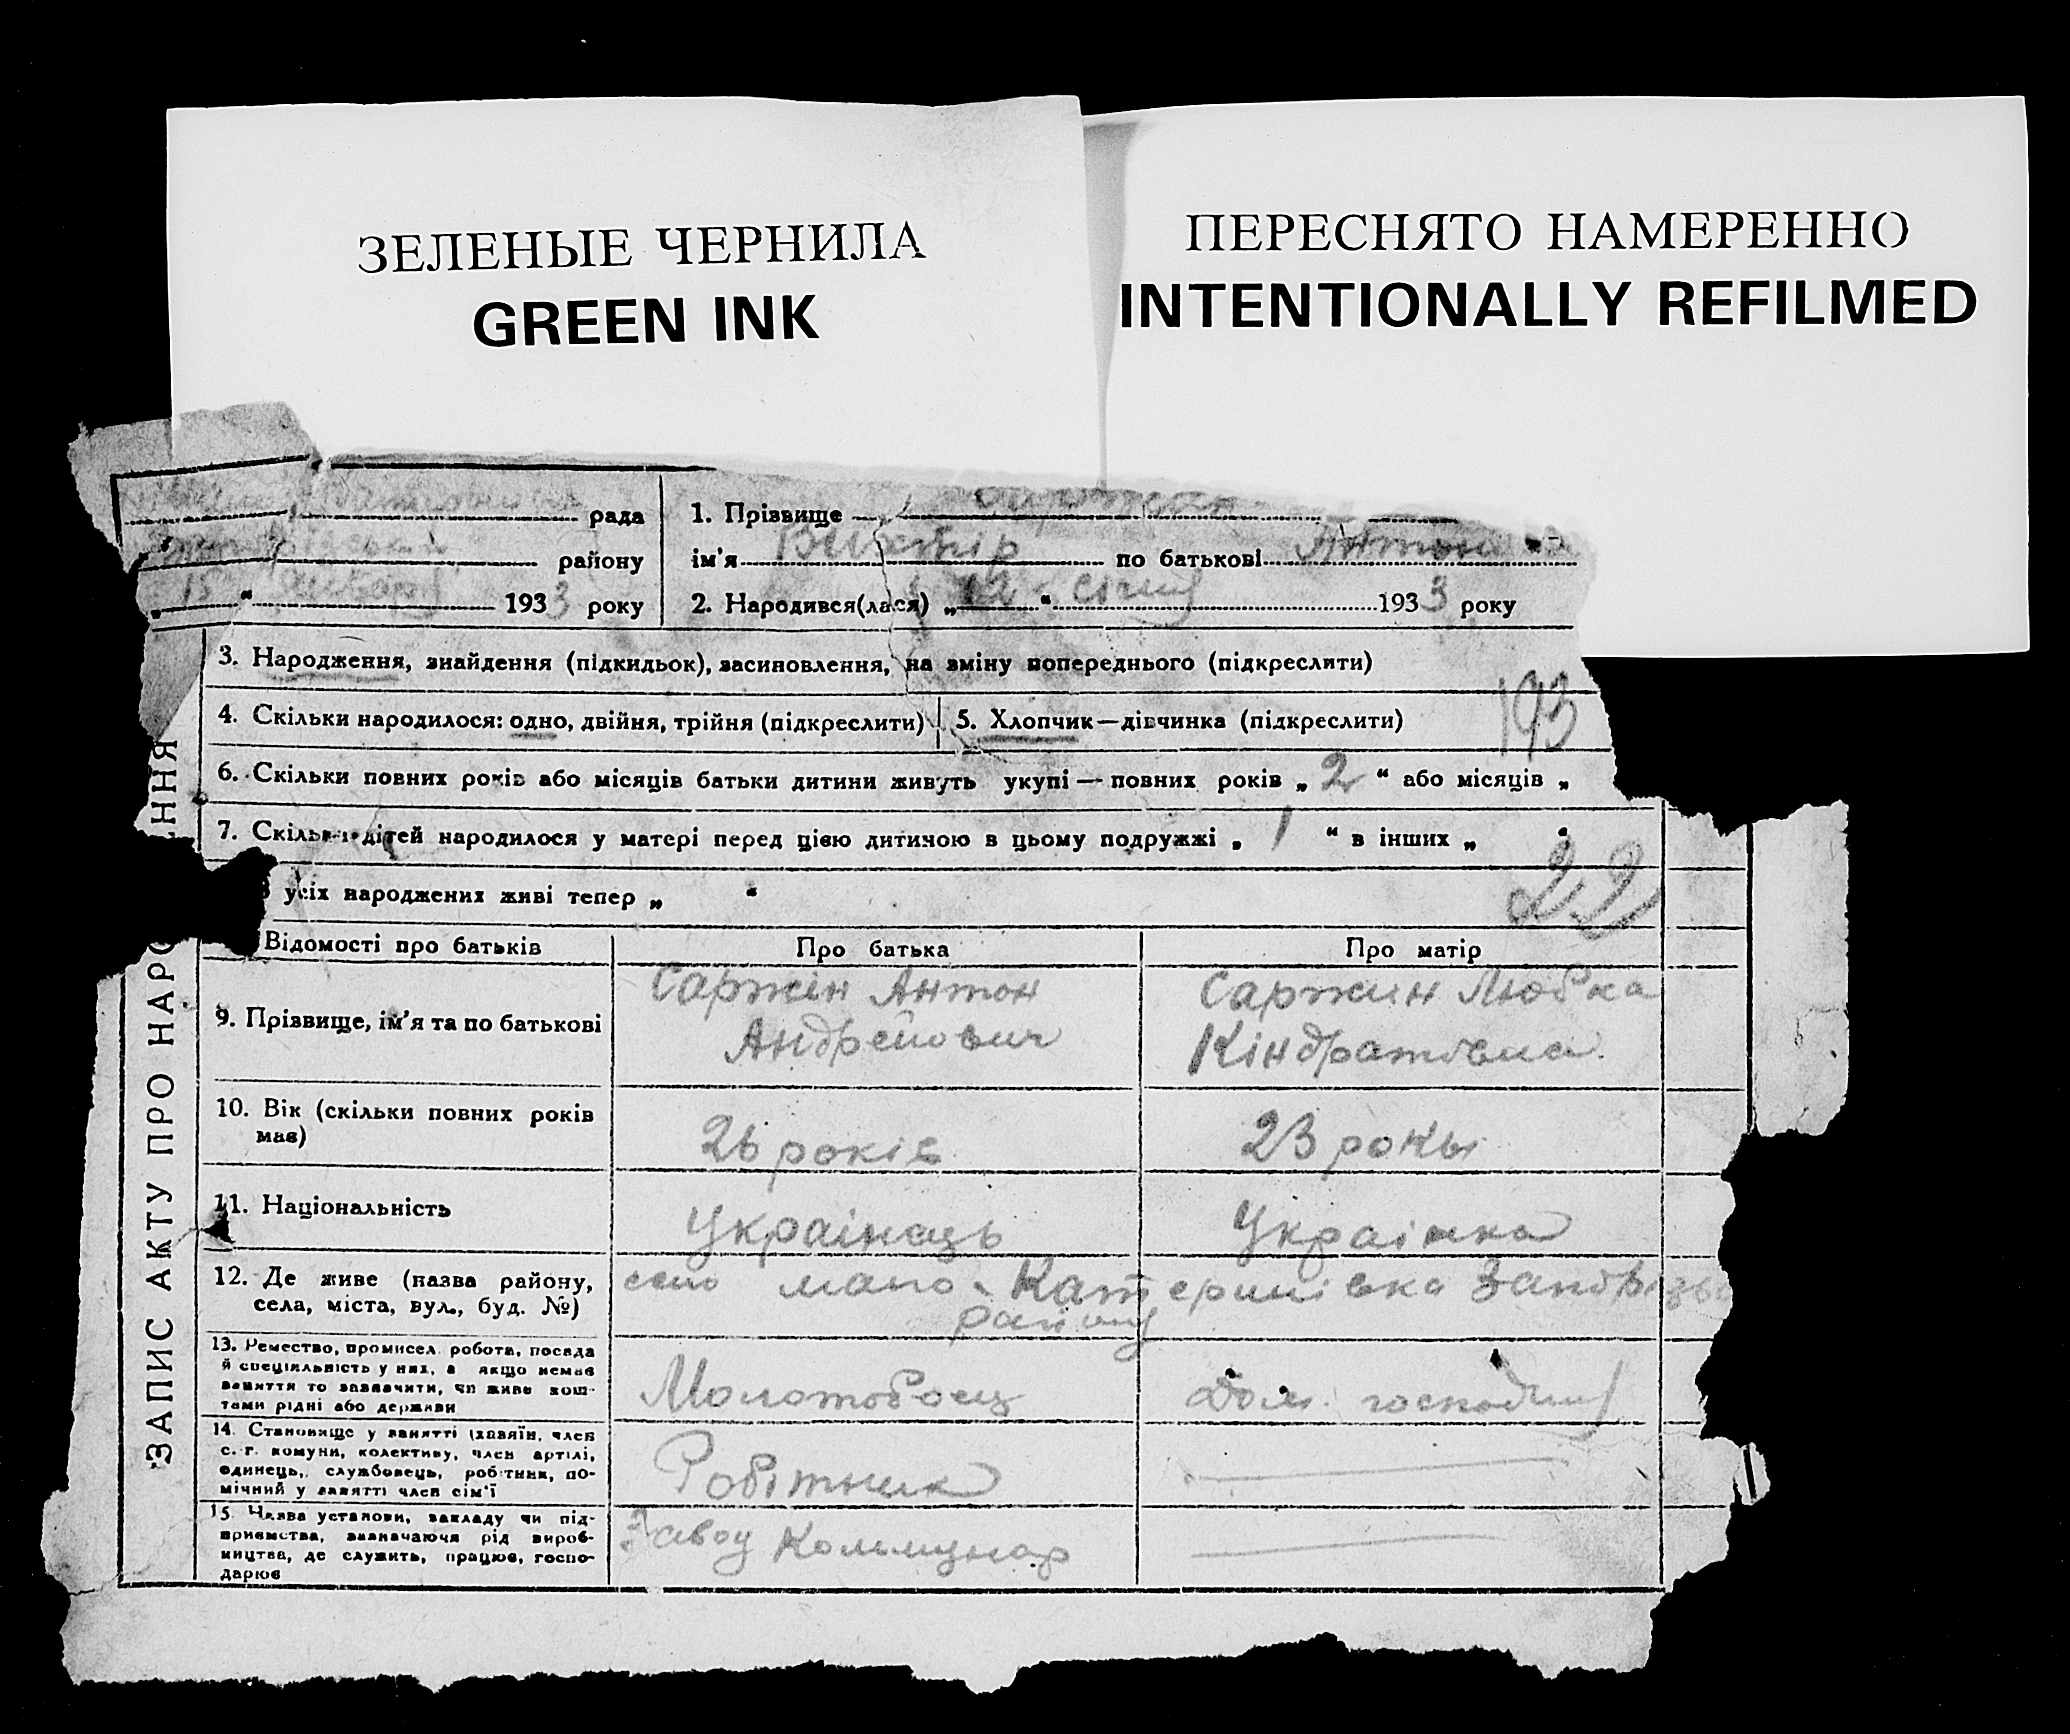 ЗЕЛЕНЫЕ ЧЕРНИЛА
GREEN INK
ПЕРЕСНЯТО НАМЕРЕННО
INTENTIONALLY REFILMED
рада
району
„ 15 “ 1933 року
1. Прізвище
ім'я Вихтір по батькові Антон
2. Народився(лася) „ 12 “ січня 1933 року
3. Народження, знайдення (підкидьок), засиновлення, на зміну попереднього (підкреслити)
193
4. Скільки народилося: одно, двійня, трійня (підкреслити)
5. Хлопчик—дівчинка (підкреслити)
6. Скільки повних років або місяців батьки дитини живуть укупі — повних років „ 2 “ або місяців „
7. Скільки дітей народилося у матері перед цією дитиною в цьому подружжі „ 1 “ в інших „ “
22
усіх народжених живі тепер „ “
ЗАПИС АКТУ ПРО НАРО ННЯ
Відомості про батьків
Про батька
Про матір
9. Прізвище, ім'я та по батькові
Саржін Антон
Андрейович
Саржин Любка
Кіндратовна
10. Вік (скільки повних років
має)
26 років
23 рокы
11. Національність
Українець
Українка
12. Де живе (назва району,
села, міста, вул., буд. №)
село мало-Катеринівка
району
13. Ремество, промисел, робота, посада
й спеціяльність у них, а якщо немає
заняття то зазначити, чи живе кош-
тами рідні або держави
Молотобоец
Дом. господин
14. Становище у занятті (хазяїн, член
с.-г. комуни, колективу, член артілі,
одинець, службовець, робітник, по-
мічний у занятті член сім'ї
Робітник
15. Назва установи, закладу чи під-
приємства, зазначаючи рід вироб-
ництва, де служить, працює, госпо-
дарює
Завод Коммунар